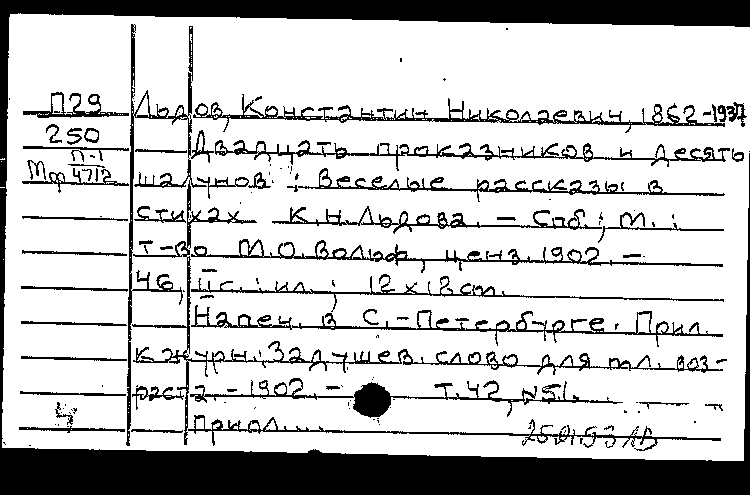 П29 Льдов, Константин Николаевич, 1862-1937
250 Двадцать проказников и десять
Мф П-1 4712 шалунов : Веселые рассказы в
стихах К.Н.Льдова. — Спб.; М. :
т-во М.О.Вольф, ценз. 1902. —
46, II с. : ил. ; 12 х 18 см.
Напеч. в С.-Петербурге. Прил.
к журн.: Задушев. слово для мл. воз-
раста. - 1902. - Т.42, №51.
4 Прил....